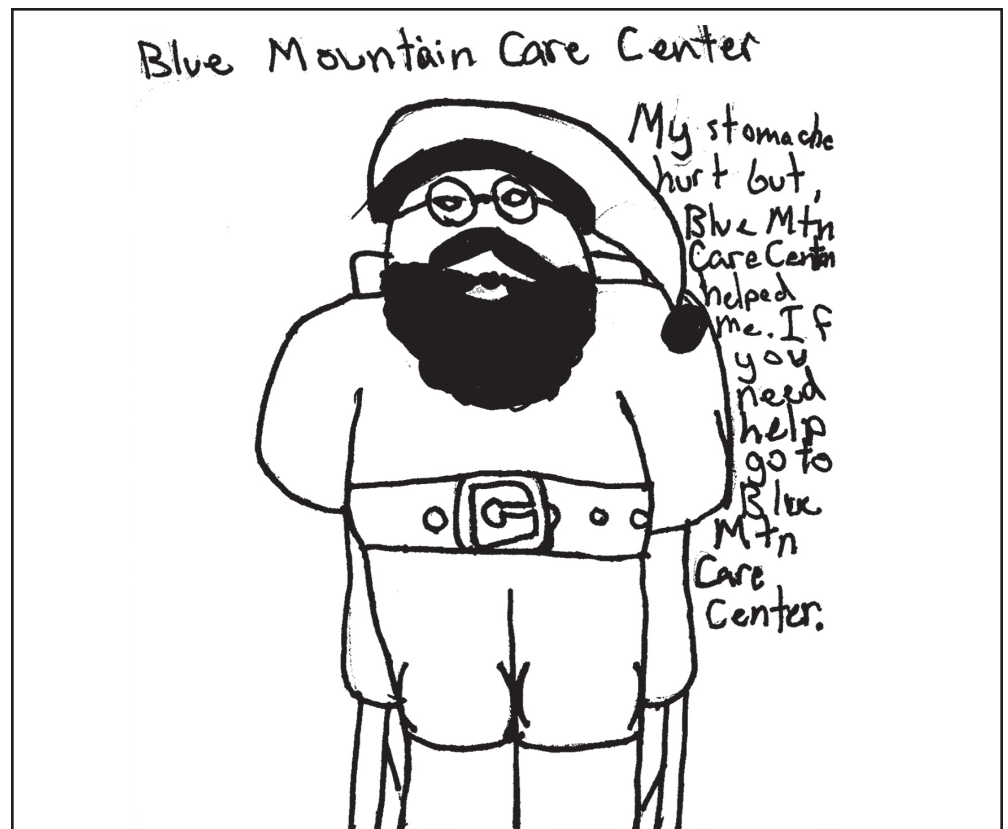 Blue Mountain Care Center
My stomache
hurt but,
Blue Mtn
Care Center
helped
me. If
you
need
help
go to
Blue
Mtn
Care
Center.